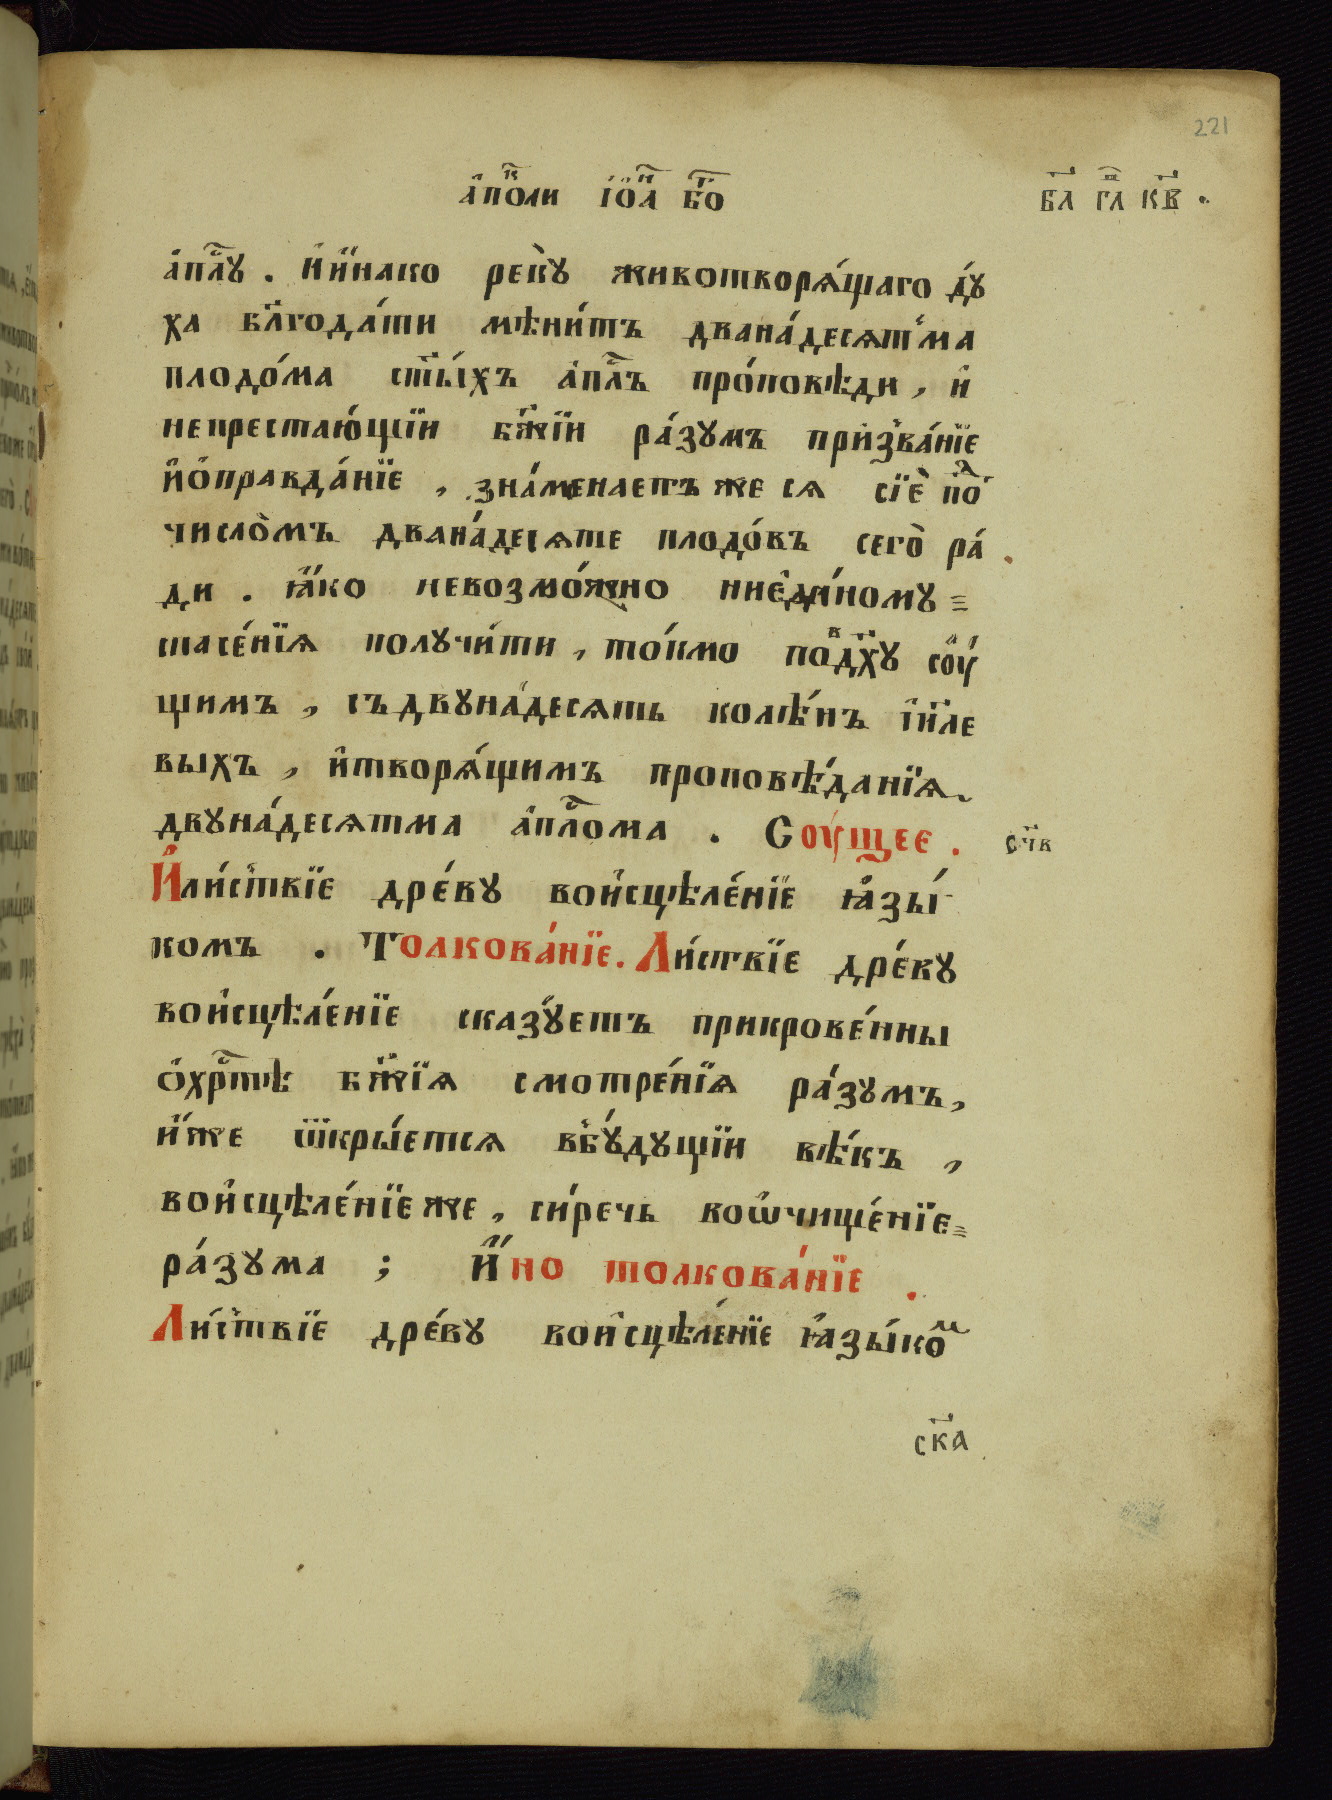 221
а҆пⷦ҇оли і҆ѡⷩ҇а бг҃о
вⷧ҇ гл҃ кв҃ .
а҆пⷭ҇лу . и҆и҆́нако реку̀ животворѧ́щаго дꙋ́
ха блг҃ода́ти мѣни́тъ двана́десѧт꙽ма
плодо́ма ст҃ы́хъ а҆пⷭ҇лъ про́повѣди , и҆
непрестаю́щїи бж҃їи ра́зумъ при́зва́нїе
и҆ѡ҆правда́нїе , зна́менаетъ же сѧ сїѐ поⷣ
число̀мъ двана́десѧте плодо́въ сего̀ ра́
ди . ꙗ҆́ко невозмо́жно ниеди́ному =
спасе́нїѧ получи́ти , то́кмо поⷡ҇дх҃у сѹ́
щимъ , съдвуна́десѧть колѣ́нъ і҆и҃ле
выхъ , и҆творѧ́щимъ проповѣ́данїѧ
двуна́десѧтма а҆пⷭ҇лома . Сѹ́щее .
сч҃в
И҆ли́ствїе дре́ву вои҆сцѣле́нїе ꙗ҆зы́
комъ . Толкова́нїе . Ли́ствїе дре́ву
вои҆сцѣле́нїе сказу́етъ прикрове́нны
ѡ҆хрⷭ҇тѣ бж҃їѧ смотре́нїѧ ра́зумъ ,
и҆́же ѿкры́етсѧ вбу́дущїи вѣ́къ ,
вои҆сцѣле́нїе же , си́речь воѡ҆чище́нїе =
ра́зума ; И҆́но толкова́нїе .
Ли́ствїе дре́ву вои҆сцѣле́нїе ꙗ҆зы́коⷨ
ск҃а